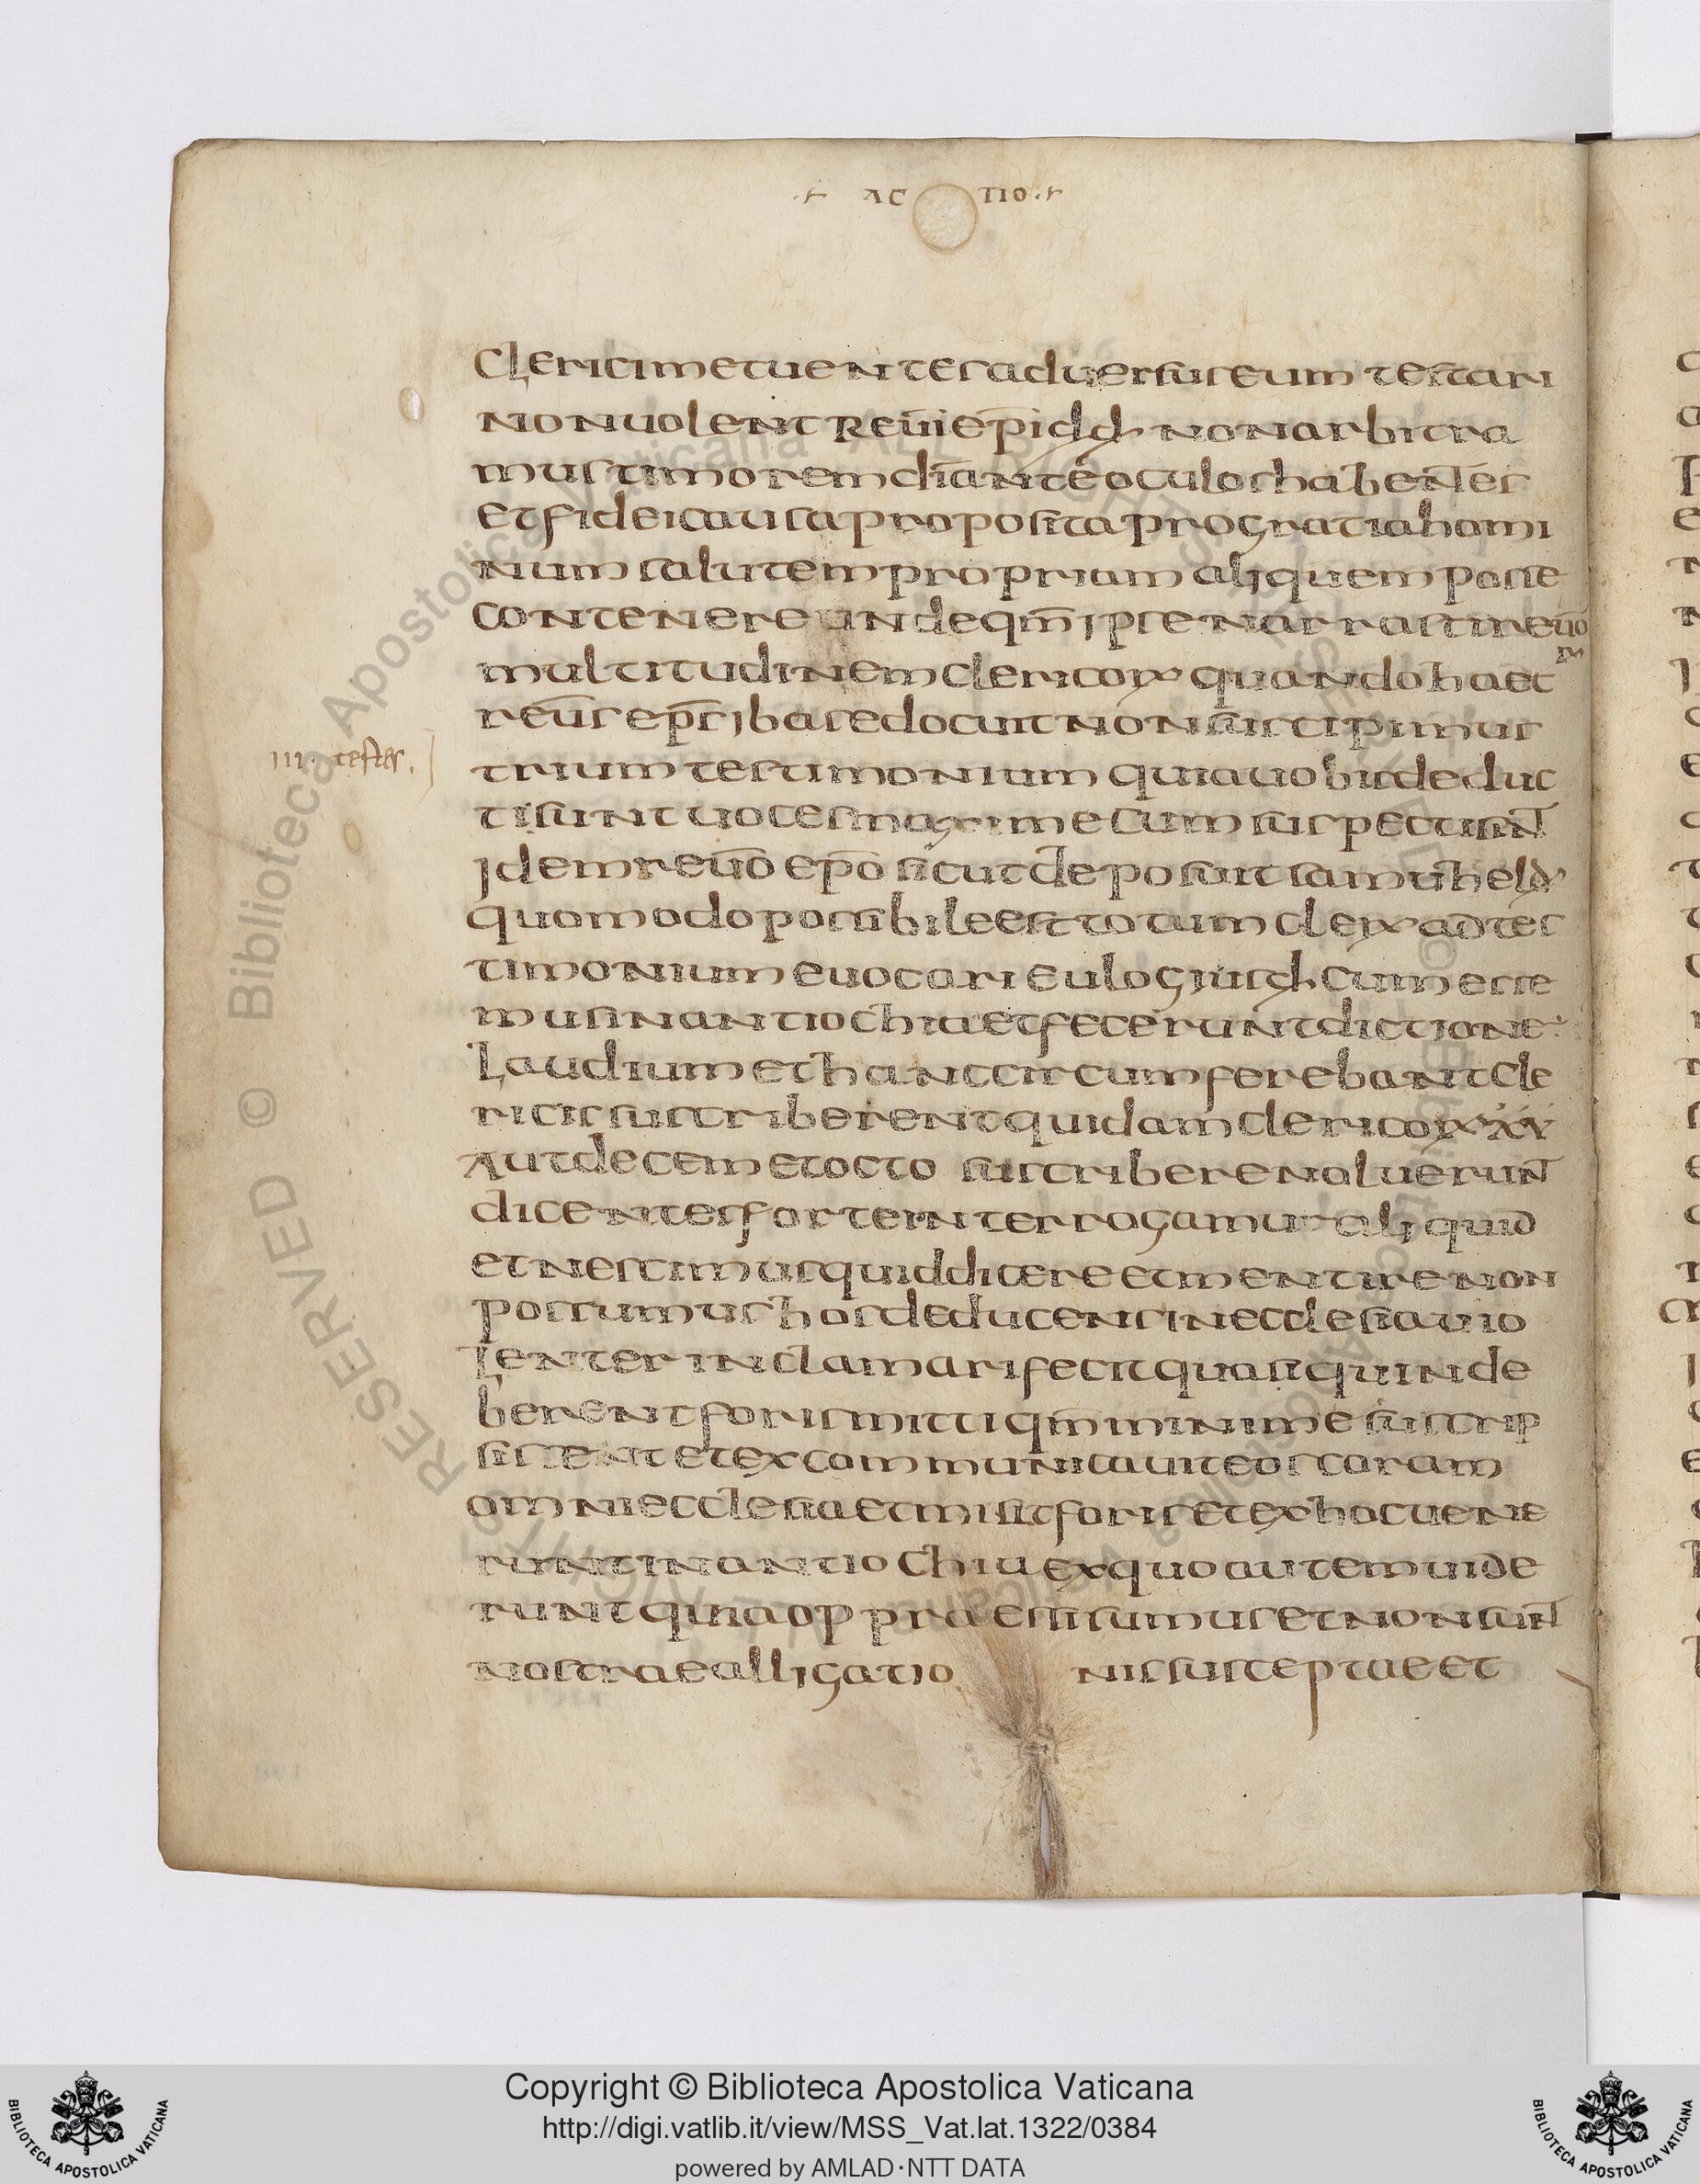 ACTIO
clerici metuentes aduersus eum testari
non uolent Reu̅i ep̅i dd non arbitra
mus timorem d̅i ante oculos habentes
et fidei causa proposita pro gratia homi
num salutem propriam aliquem posse
contenere unde qm̅ ipse narrasti reu̅o
multitudinem clericor quando haec
reu̅s ep̅s ibas edocuit non suscipimus
III testes.
trium testimonium quia uobis deduc
ti sunt uoces maxime cum suspecti sint
idem reu̅o ep̅o sicut deposuit samuhel
quomodo possibile est totum cler ad tes
timonium euocari Eulogius d cum esse
mus in antiochia et fecerunt dictione
laudium et hanc circumferebant cle
ricis suscriberent quidam clericor XV
Aut decem et octo suscribere noluerunt
dicentes forte interrogamur aliquid
et nescimus quid dicere et mentire non
possumus hos deducens in ecclesia uio
lenter inclamari fecit quasi qui inde
berent foris mitti qm̅ minime suscrip
sissent et excommunicauit eos coram
omni ecclesia et misit foris et ex hoc uene
runt in antiochia ex quo autem uide
runt quia oppraessi sumus et non sunt
nostrae alligationis susceptae et
Copyright © Biblioteca Apostolica Vaticana
http://digi.vatlib.it/view/MSS_Vat.lat.1322/0384
powered by AMLAD·NTT DATA
BIBLIOTECA APOSTOLICA VATICANA
BIBLIOTECA APOSTOLICA VATICANA